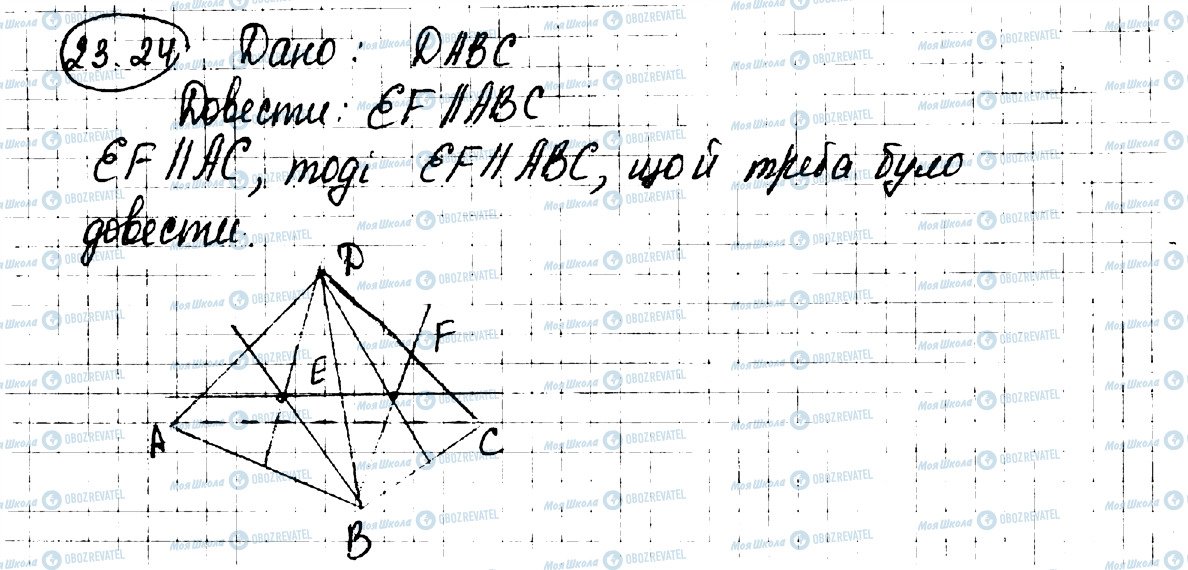 23.24. Дано: DABC
Довести: EF || ABC
EF || AC, тоді EF || ABC, що й треба було
довести.
D
F
E
A
C
B